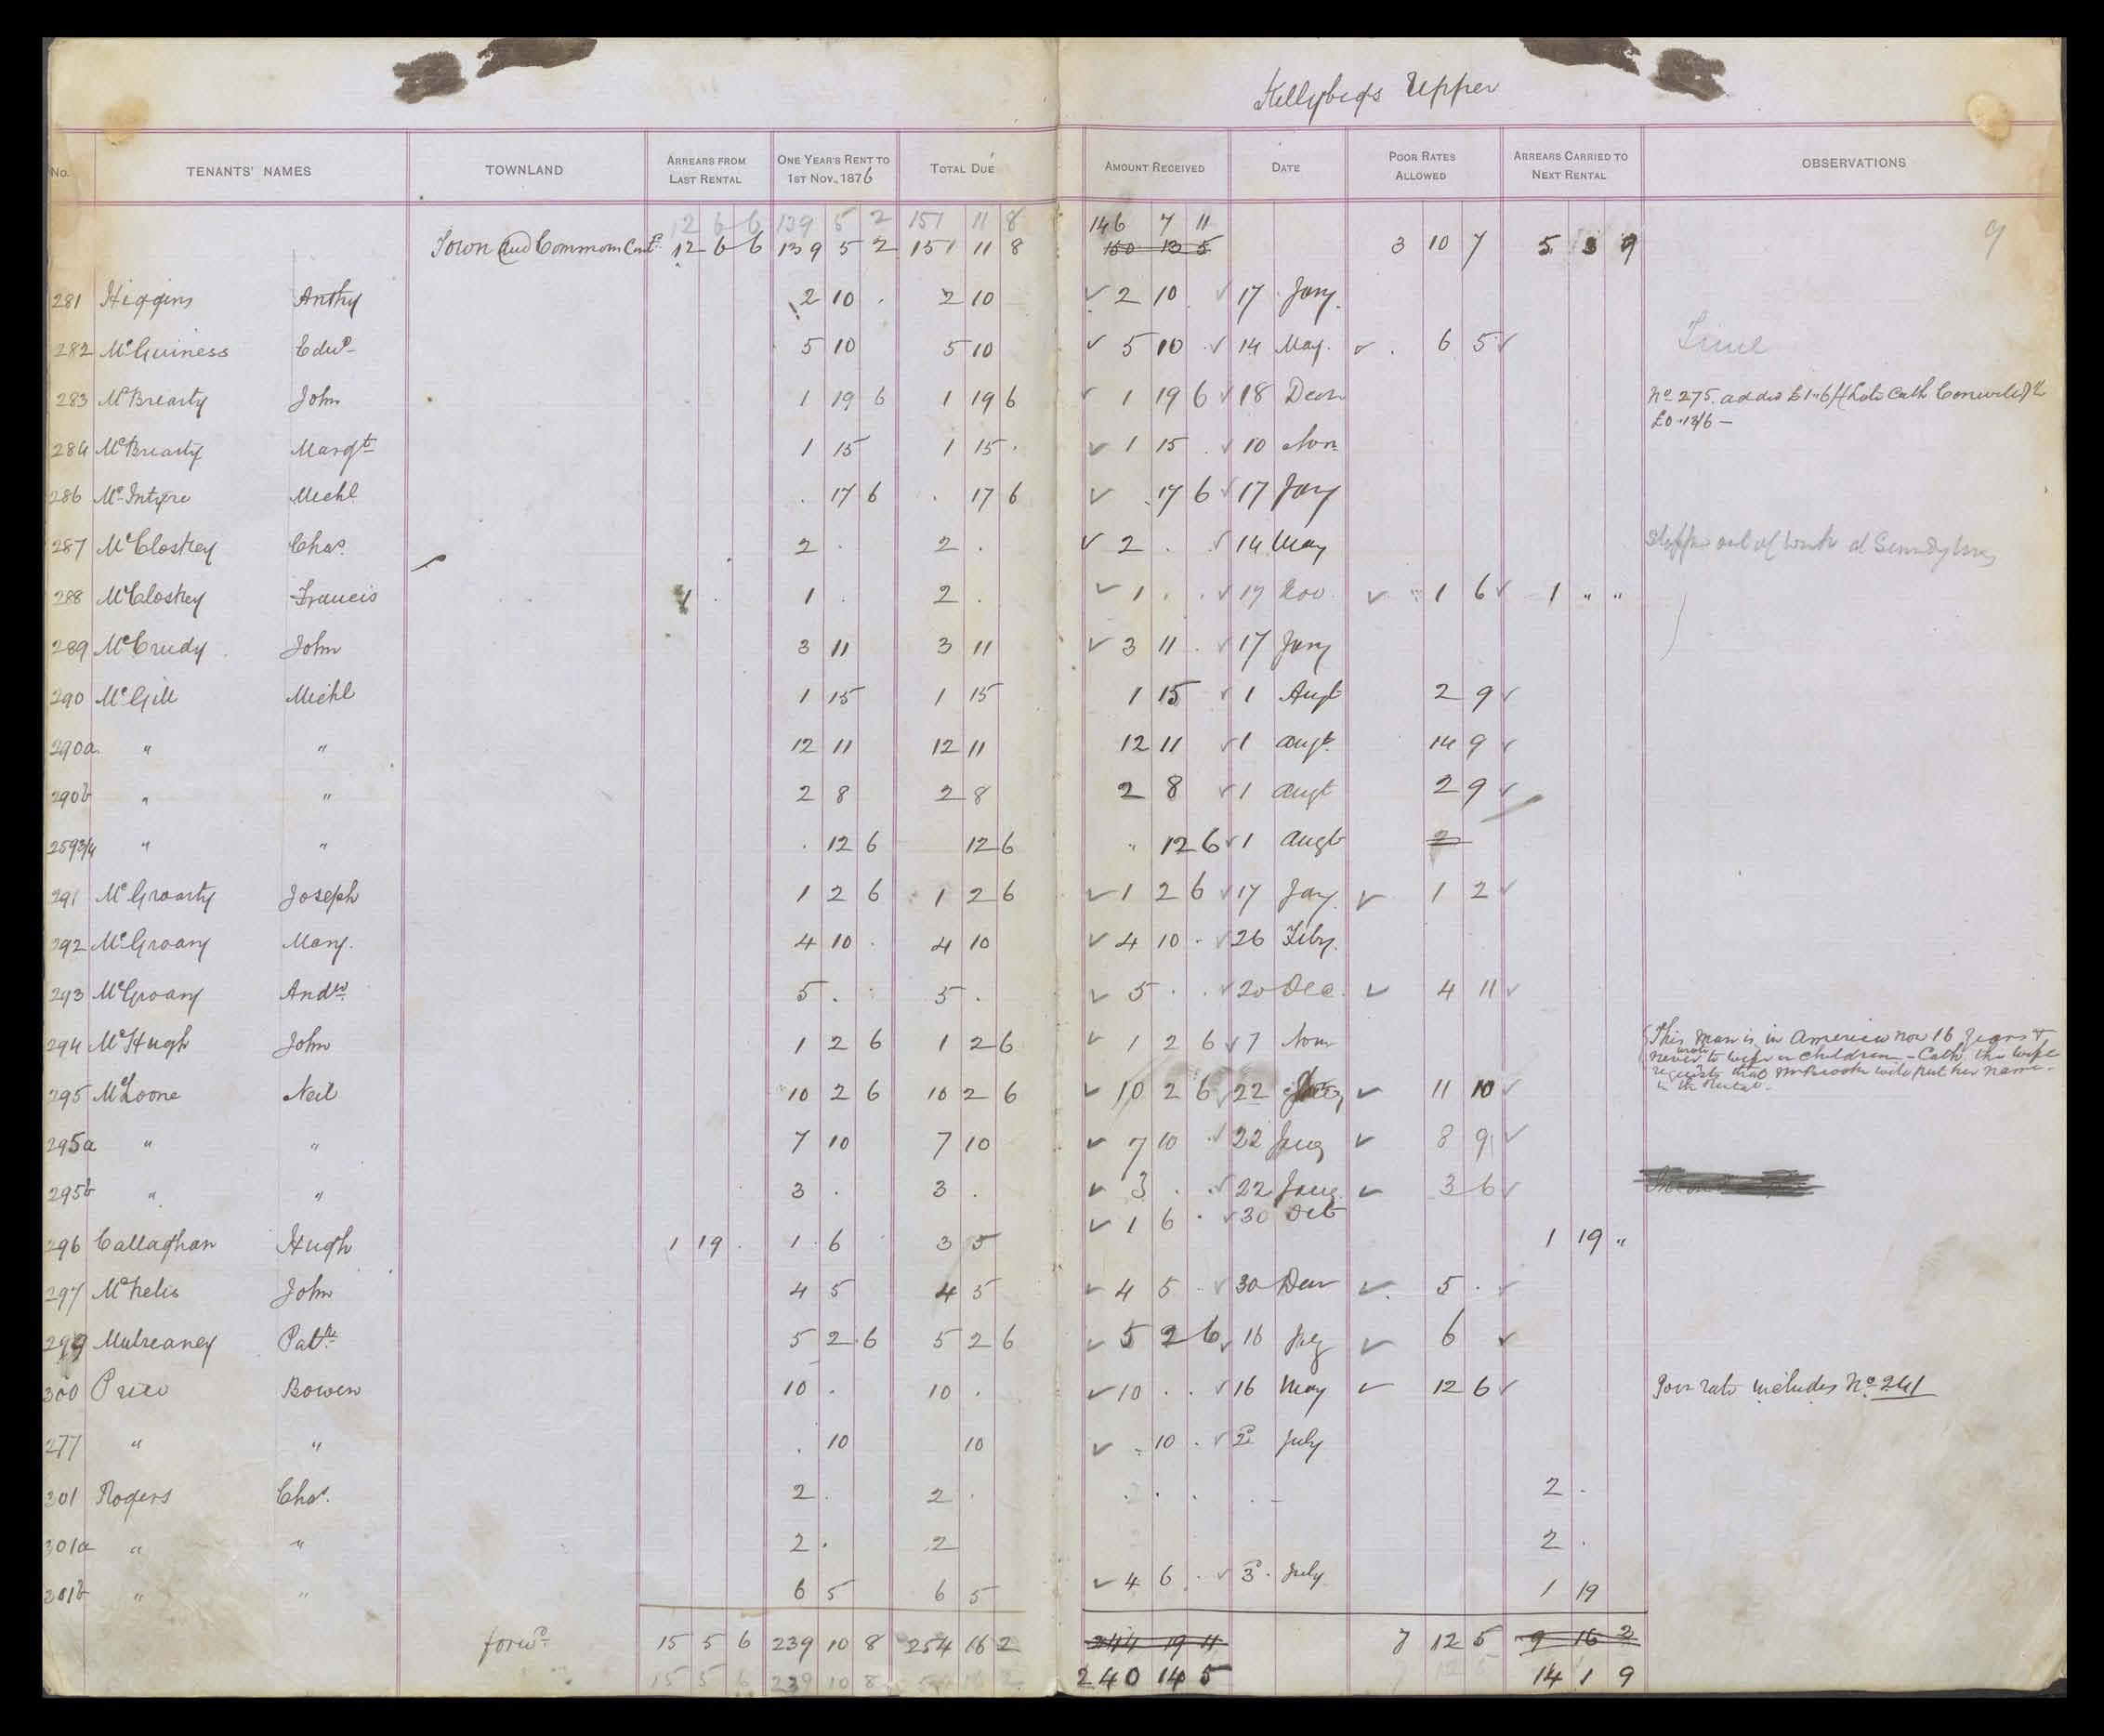 Killybegs Upper
No. TENANTS' NAMES TOWNLAND ARREARS FROM LAST RENTAL ONE YEAR'S RENT TO 1ST NOV., 1876 TOTAL DUE AMOUNT RECEIVED DATE POOR RATES ALLOWED ARREARS CARRIED TO NEXT RENTAL OBSERVATIONS
12 6 6 139 5 2 151 11 8 146 7 11 9
Town and Commons Contd 12 6 6 139 5 2 151 11 8 150 13 5 3 10 7 5 3 9
281 Higgins Anthy 2 10 . 2 10 ✓ 2 10 . ✓ 17 Jany.
282 McGuiness Edwd 5 10 5 10 ✓ 5 10 . ✓ 14 May. ✓ . 6 5 ✓
283 McBrearty John 1 19 6 1 19 6 ✓ 1 19 6 ✓ 18 Decr No 275 added £1-6/ (late Cath
£0-13/6 —
284 McBrearty Margt 1 15 1 15 . ✓ 1 15 . ✓ 10 Novr
286 McIntyre Michl . 17 6 . 17 6 ✓ . 17 6 ✓ 17 Jany
287 McCloskey Chas. 2 . 2 . ✓ 2 . ✓ 14 May out of work at
288 McCloskey Francis 1 . 1 . 2 . ✓ 1 . . ✓ 19 Nov. ✓ " 1 6 ✓ 1 " "
289 McCrudy John 3 11 3 11 ✓ 3 11 . ✓ 17 Jany
290 McGill Michl 1 15 1 15 1 15 ✓ 1 Augt 2 9 ✓
290a. " " 12 11 12 11 12 11 ✓ 1 augt. 14 9 ✓
290b " " 2 8 2 8 2 8 ✓ 1 augt 2 9 ✓
259 3/4 " " . 12 6 12 6 " 12 6 ✓ 1 augt 2
291 McGroarty Joseph 1 2 6 1 2 6 ✓ 1 2 6 ✓ 17 Jany. ✓ 1 2 ✓
292 McGroary Mary. 4 10 . 4 10 ✓ 4 10 . ✓ 26 Feby.
293 McGroary Andw 5 . 5 . ✓ 5 . . ✓ 20 Dec. ✓ 4 11 ✓
294 McHugh John 1 2 6 1 2 6 ✓ 1 2 6 ✓ 7 Novr This man is in America now 16 years &
never wrote to wife or children - Cath. the wife
requests that Mr Brooke will put her name
in the Rental.
295 McLoone Neil 10 2 6 10 2 6 ✓ 10 2 6 ✓ 22 ✓ 11 10 ✓
295a " " 7 10 7 10 ✓ 7 10 . ✓ 22 Jany ✓ 8 9 ✓
295b " " 3 . 3 . ✓ 3 . . ✓ 22 Jany ✓ 3 6 ✓
✓ 1 6 . ✓ 30 Oct
296 Callaghan Hugh 1 19 . 1 . 6 3 5 1 19 "
297 McNelis John 4 5 4 5 ✓ 4 5 . ✓ 30 Decr ✓ 5 . ✓
299 Mulreaney Patk 5 2 6 5 2 6 ✓ 5 2 6 ✓ 16 ✓ 6 ✓
300 Price Bowen 10 . 10 . ✓ 10 . . ✓ 16 May ✓ 12 6 ✓ Poor rate includes No 241
277 " " . 10 10 ✓ " 10 . ✓ 2d July
301 Rogers Chas. 2 . 2 . . . . . - 2 .
301a " " 2 . 2 2 .
301b " " 6 5 6 5 ✓ 4 6 . ✓ 3d. July 1 19
forwd 15 5 6 239 10 8 254 16 2 244 19 11 7 12 5 9 16 2
15 5 6 239 10 8 240 14 5 14 1 9